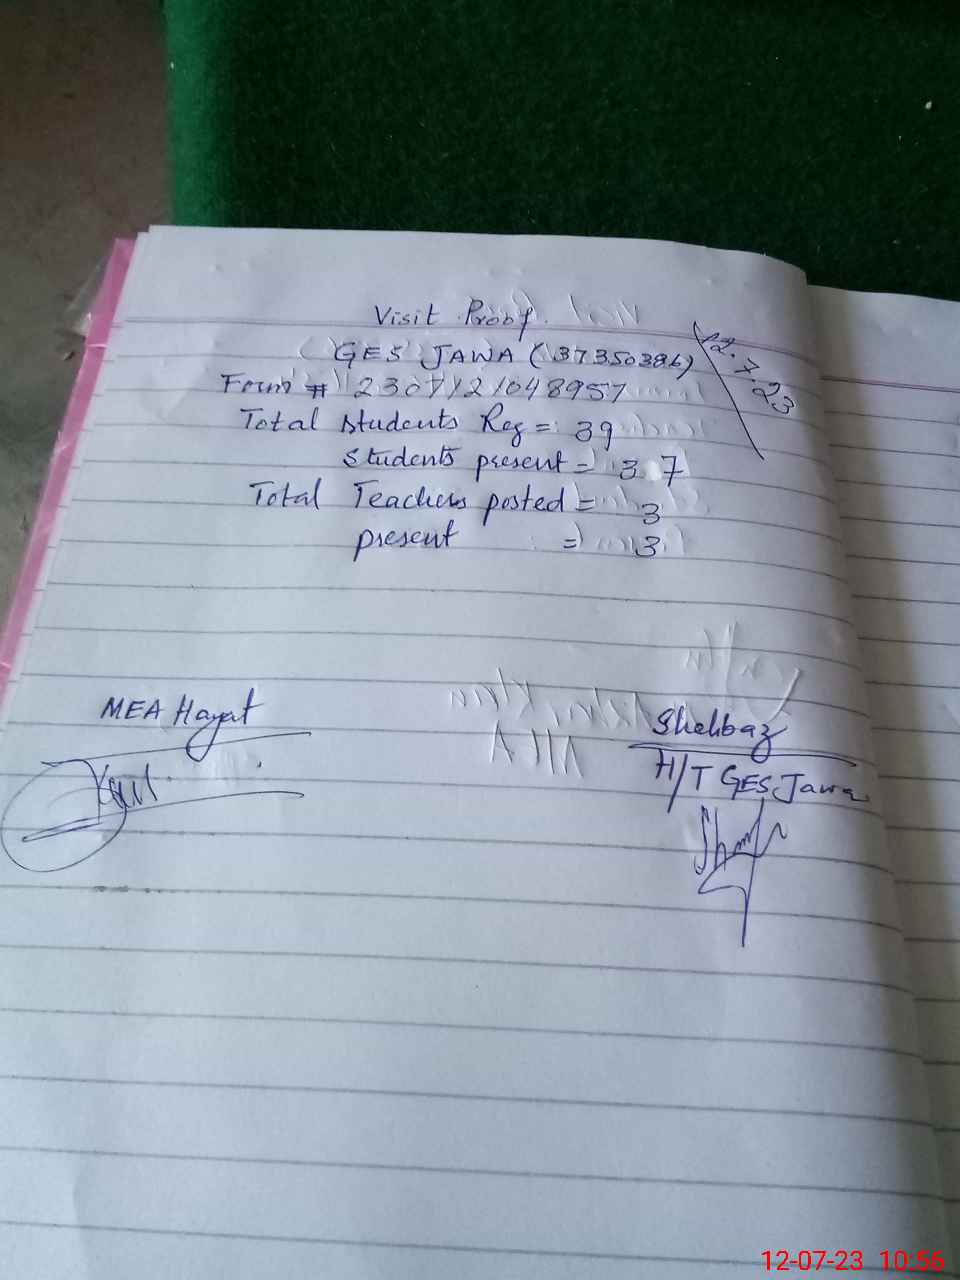 Visit Proof.
GES JAWA (37350386)
12.7.23
Form # 2307121048957
Total students Reg = 39
students present = 37
Total Teachers posted = 3
present = 3
MEA Hayat
Shehbaz
H/T GES Jawa
12-07-23 10:56